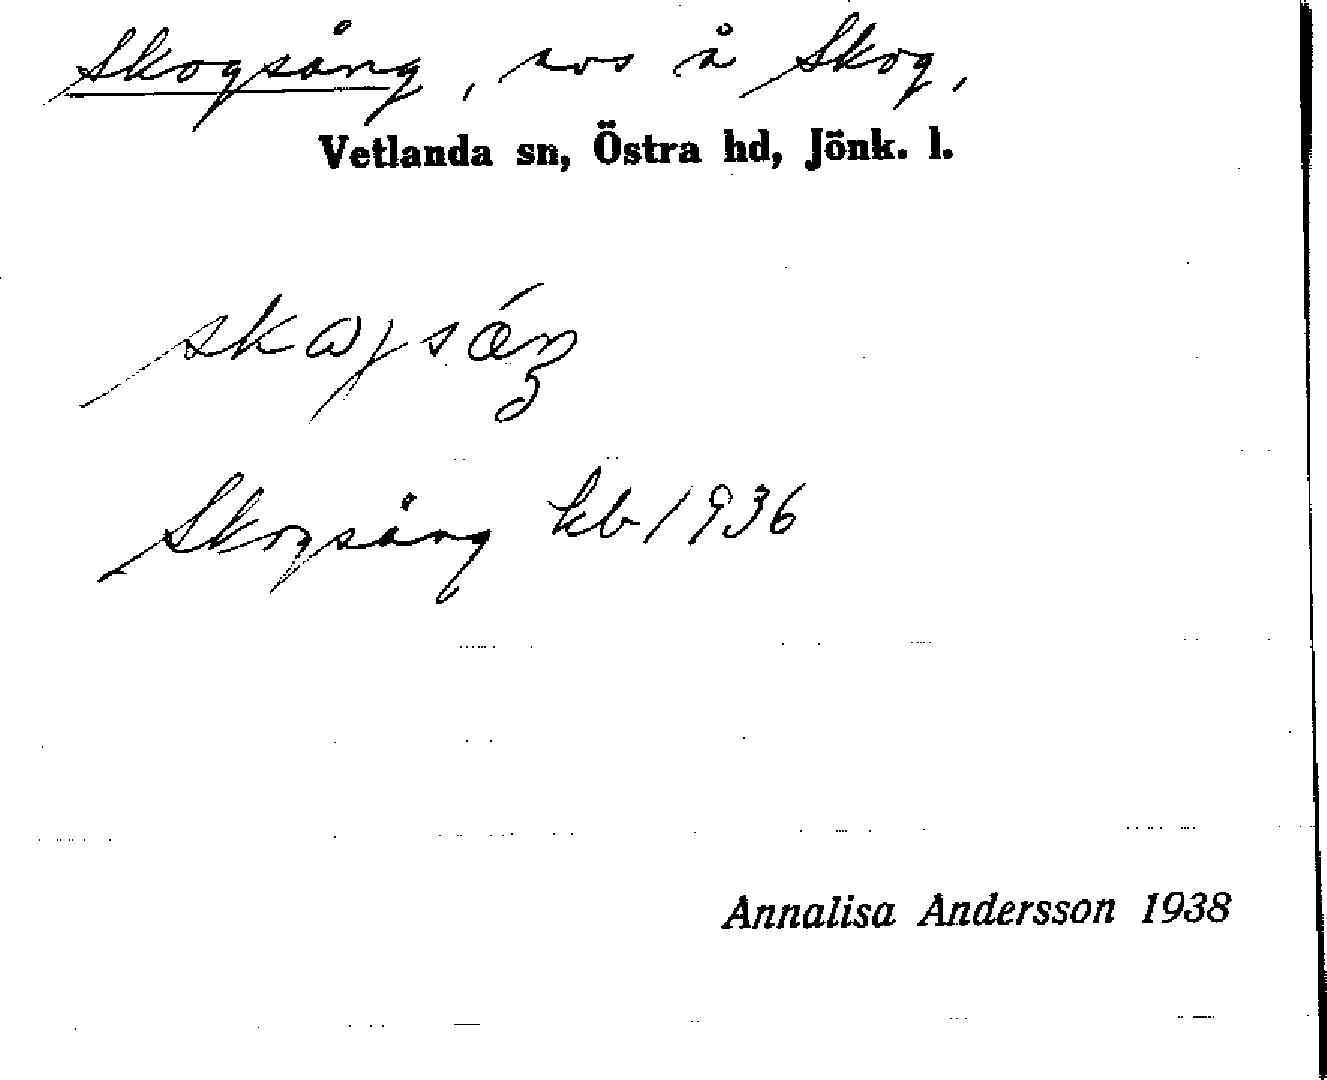 Skogsång, avs å Skog,
Vetlanda sn, Östra hd, Jönk. l.
Skogsång kb 1936
Annalisa Andersson 1938